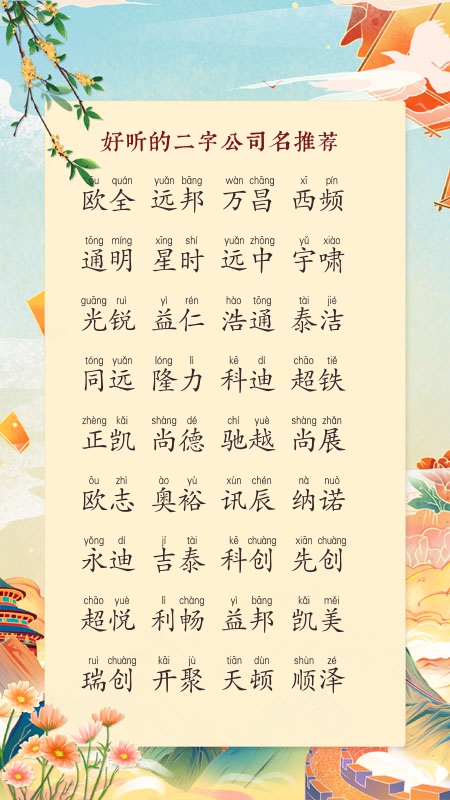 好听的二字公司名推荐
ōu quán yuǎn bāng wàn chāng xī pín
欧全 远邦 万昌 西频
tōng míng xīng shí yuǎn zhōng yǔ xiào
通明 星时 远中 宇啸
guāng ruì yì rén hào tōng tài jié
光锐 益仁 浩通 泰洁
tóng yuǎn lóng lì kē dí chāo tiě
同远 隆力 科迪 超铁
zhèng kǎi shàng dé chí yuè shàng zhǎn
正凯 尚德 驰越 尚展
ōu zhì ào yù xùn chén nà nuò
欧志 奥裕 讯辰 纳诺
yǒng dí jí tài kē chuàng xiān chuàng
永迪 吉泰 科创 先创
chāo yuè lì chàng yì bāng kǎi měi
超悦 利畅 益邦 凯美
ruì chuàng kāi jù tiān dùn shùn zé
瑞创 开聚 天顿 顺泽